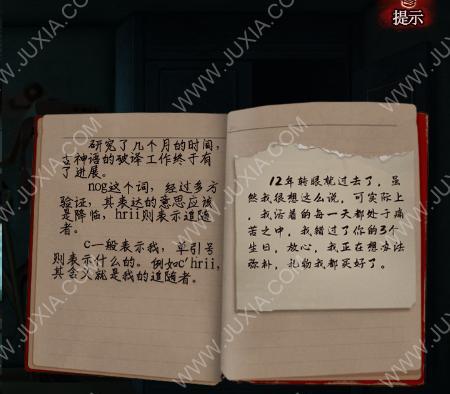 提示
研究了几个月的时间,
古神语的破译工作终于有
了进展。
nog这个词，经过多方
验证，其表达的意思应该
是降临，hrii则表示追随
者。
C一般表示我，单引号
则表示什么的。例如C'hrii,
其含义就是我的追随者。
12年转眼就过去了，虽
然我很想这么说，可实际上
，我活着的每一天都处于痛
苦之中，我错过了你的3个
生日，放心，我正在想办法
弥补，礼物我都买好了。
WWW.JUXIA.COM